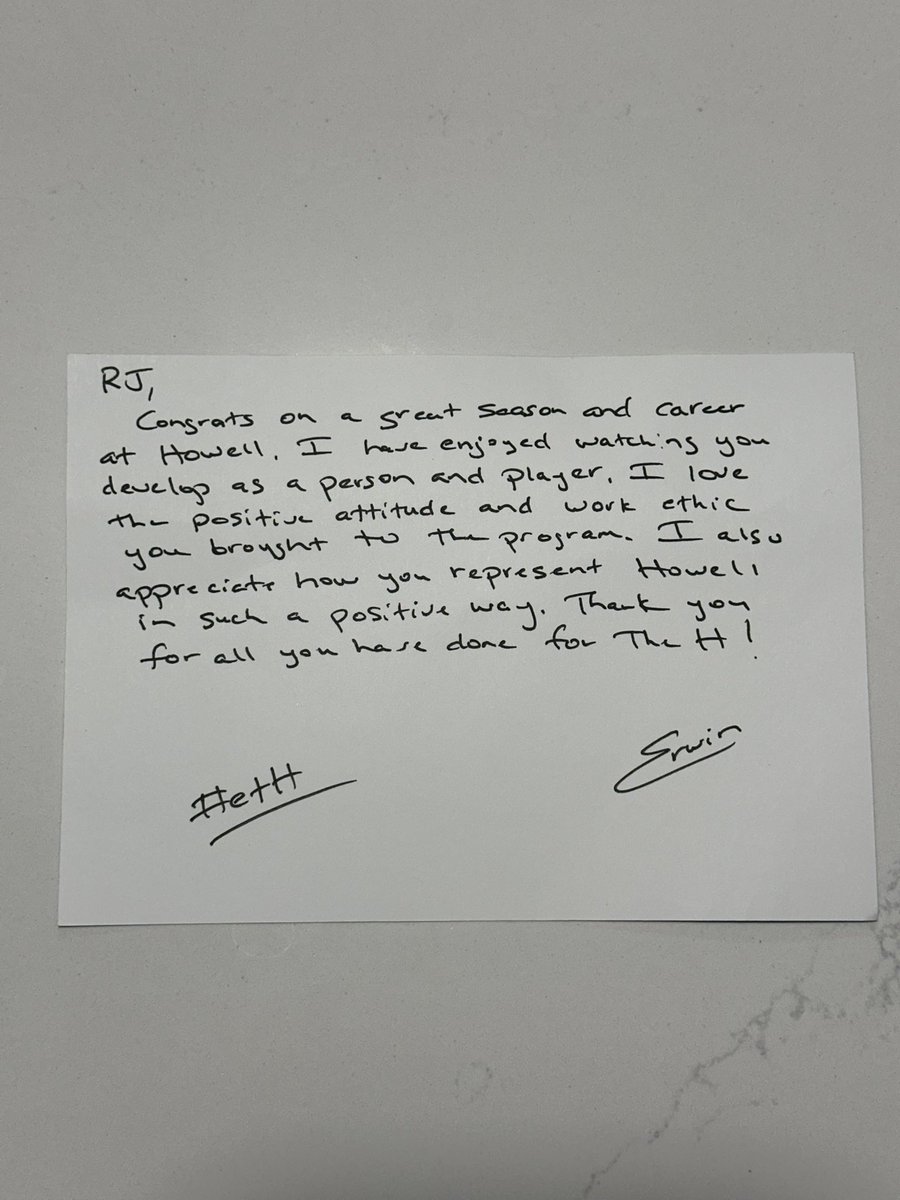 RJ,
Congrats on a great season and career
at Howell. I have enjoyed watching you
develop as a person and player. I love
the positive attitude and work ethic
you brought to the program. I also
appreciate how you represent Howell
in such a positive way. Thank you
for all you have done for The H!
#etH
Erwin